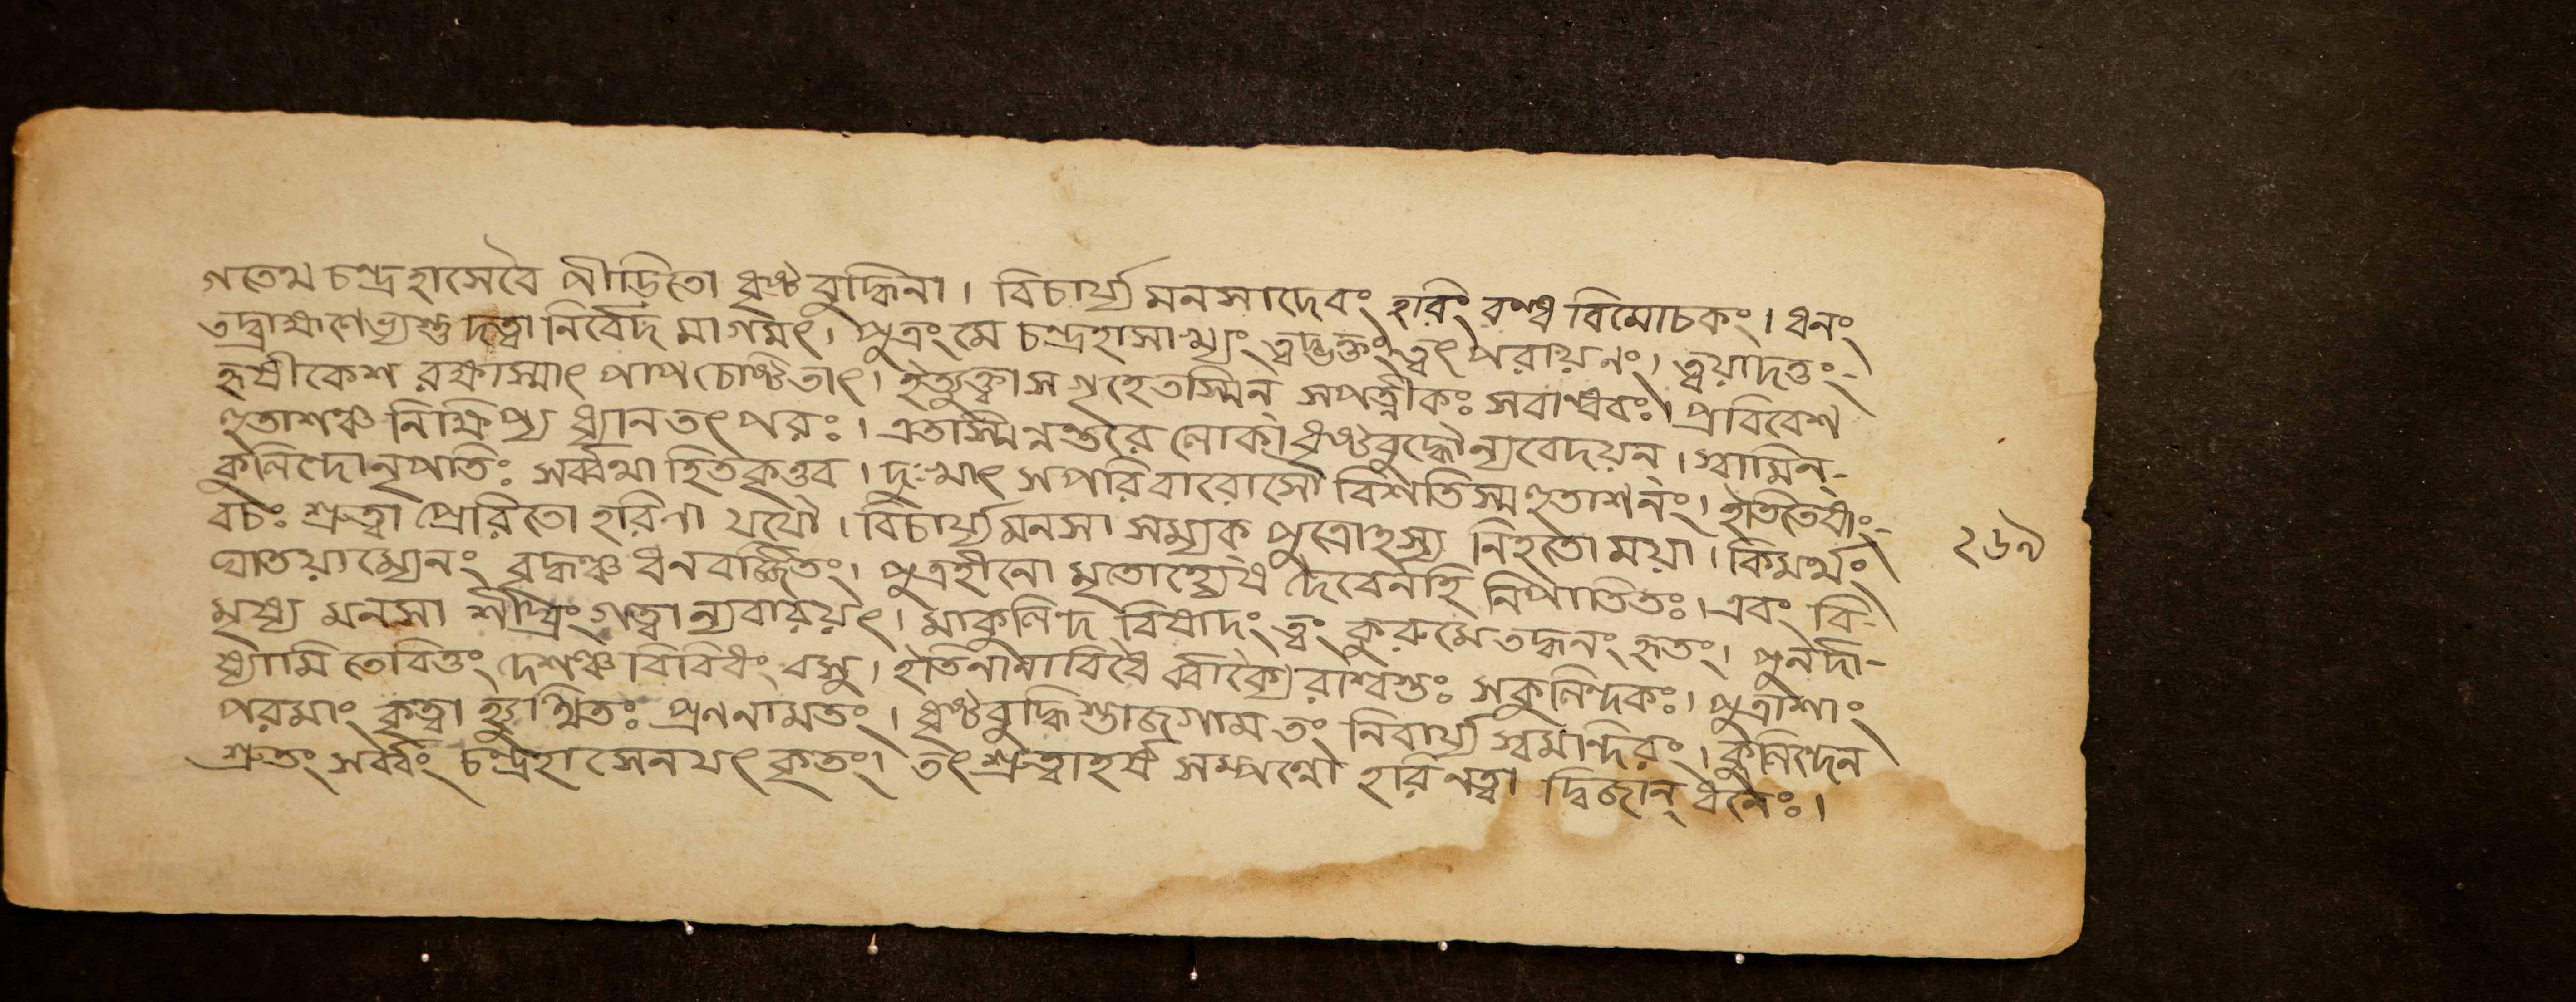 গতেথ চন্দ্রহাসেবৈ পীড়িতো ধৃষ্টবুদ্ধিনা। বিচার্য্য মনসাদেবং হরিং বন্ধ বিমোচকং। ধনং
তদ্ব্রাহ্মণেভ্যস্তু দত্বা নির্বেদ মাগমৎ। পুত্রং মে চন্দ্রহাসাখ্যং ত্বদ্ভক্তং ত্বৎ পরায়নং। ত্বয়াদত্তং-
হৃষীকেশ রক্ষাস্মাৎ পাপ চেষ্টিতাৎ। ইত্যুক্ত্বাস গৃহেতস্মিন্ সপত্নীকঃ সবান্ধবঃ। প্রবিবেশ
হুতাশঞ্চ নিক্ষিপ্য ধ্যান তৎপরঃ। এতস্মিন্নন্তরে লোকা ধৃষ্টবুদ্ধৌন্যবেদয়ন্। স্বামিন্-
কুলিন্দোনৃপতিঃ সর্ব্বথা হিতকৃত্তব। দুঃখাৎ সপরিবারোসৌ বিশতিস্ম হুতাশনং। ইতিতেষাং-
বচঃ শ্রুত্বা প্রেরিতো হরিনা যযৌ। বিচার্য্য মনসা সম্যক্ পুত্রোহস্য নিহতো ময়া। কিমর্থং
ঘাতয়াম্যেনং বৃদ্ধঞ্চ ধনবর্জ্জিতং। পুত্রহীনো মৃতোহ্যেষ দেবেনহি নিপাতিতঃ। এবং বি-
মৃষ্য মনসা শীঘ্রং গত্বা ন্যবারয়ৎ। মাকুলিন্দ বিষাদং ত্বং কুরুমে তদ্ধনং হৃতং। পুনর্দা-
ষ্যামি তেবিত্তং দেশঞ্চ বিবিধং বসু। ইতিনানাবিধৈ র্ব্বাক্যৈ রাশ্বস্তঃ সকুলিন্দকঃ। পুত্রাশাং
পরমাং কৃত্বা হ্যুত্থিতঃ প্রননামতং। ধৃষ্টবুদ্ধিস্তাজগাম তং নিবার্য্য স্বমন্দিরং। কুলিন্দেন
শ্রুতং সর্ব্বং চন্দ্রহাসেনযৎ কৃতং। তৎ শ্রুত্বাহর্ষ সম্পন্নো হরি নত্বা দ্বিজান্ ধনৈঃ।
২৬৯